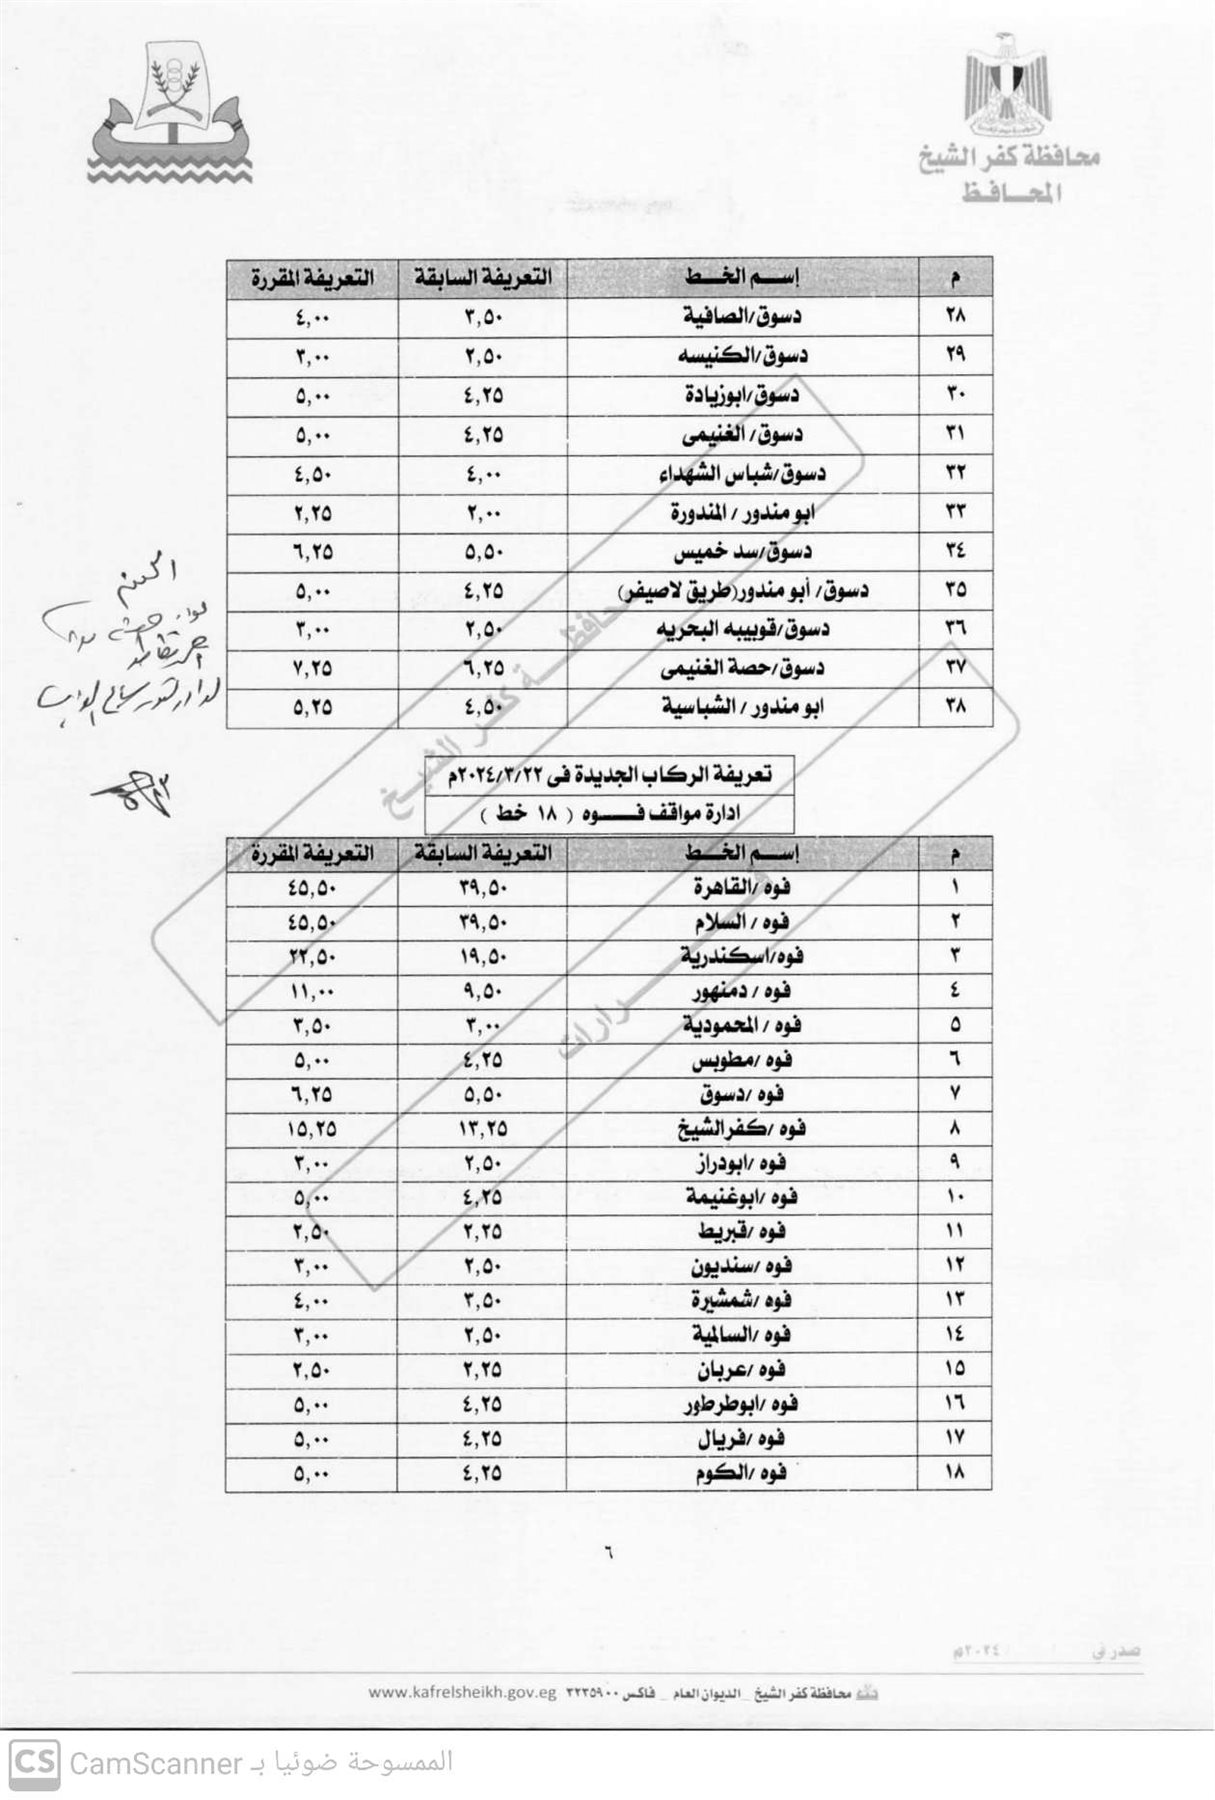 محافظة كفر الشيخ
المحافظ
م إسم الخط التعريفة السابقة التعريفة المقررة
٢٨ دسوق/الصافية ٣,٥٠ ٤,٠٠
٢٩ دسوق/الكنيسه ٢,٥٠ ٣,٠٠
٣٠ دسوق/ابوزيادة ٤,٢٥ ٥,٠٠
٣١ دسوق/ الغنيمى ٤,٢٥ ٥,٠٠
٣٢ دسوق/شباس الشهداء ٤,٠٠ ٤,٥٠
٣٣ ابو مندور / المندورة ٢,٠٠ ٢,٢٥
٣٤ دسوق/سد خميس ٥,٥٠ ٦,٢٥
٣٥ دسوق/ أبو مندور(طريق لاصيفر) ٤,٢٥ ٥,٠٠
٣٦ دسوق/قوبيبه البحريه ٢,٥٠ ٣,٠٠
٣٧ دسوق/حصة الغنيمى ٦,٢٥ ٧,٢٥
٣٨ ابو مندور / الشباسية ٤,٥٠ ٥,٢٥
تعريفة الركاب الجديدة فى ٢٠٢٤/٣/٢٢م
ادارة مواقف فـــوه ( ١٨ خط )
م إسم الخط التعريفة السابقة التعريفة المقررة
١ فوه /القاهرة ٣٩,٥٠ ٤٥,٥٠
٢ فوه / السلام ٣٩,٥٠ ٤٥,٥٠
٣ فوه/اسكندرية ١٩,٥٠ ٢٢,٥٠
٤ فوه / دمنهور ٩,٥٠ ١١,٠٠
٥ فوه / المحمودية ٣,٠٠ ٣,٥٠
٦ فوه /مطوبس ٤,٢٥ ٥,٠٠
٧ فوه /دسوق ٥,٥٠ ٦,٢٥
٨ فوه /كفرالشيخ ١٣,٢٥ ١٥,٢٥
٩ فوه /ابودراز ٢,٥٠ ٣,٠٠
١٠ فوه /ابوغنيمة ٤,٢٥ ٥,٠٠
١١ فوه /قبريط ٢,٢٥ ٢,٥٠
١٢ فوه /سنديون ٢,٥٠ ٣,٠٠
١٣ فوه /شمشيرة ٣,٥٠ ٤,٠٠
١٤ فوه /السالمية ٢,٥٠ ٣,٠٠
١٥ فوه /عربان ٢,٢٥ ٢,٥٠
١٦ فوه /ابوطرطور ٤,٢٥ ٥,٠٠
١٧ فوه /فريال ٤,٢٥ ٥,٠٠
١٨ فوه /الكوم ٤,٢٥ ٥,٠٠
محافظة كفر الشيخ
قـــرارات
٦
صدر في / / ٢٠٢٤م
محافظة كفر الشيخ _ الديوان العام _ فاكس ٣٢٣٥٩٠٠ www.kafrelsheikh.gov.eg
CS CamScanner الممسوحة ضوئيا بـ